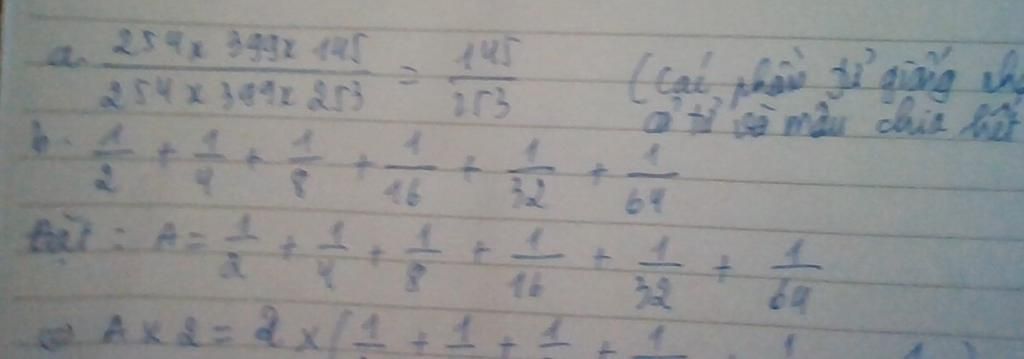 a. 254 x 399 x 145 / 254 x 399 x 253 = 145 / 253 (các phần tử giống
ở tử và mẫu chia hết
b. 1/2 + 1/4 + 1/8 + 1/16 + 1/32 + 1/64
Đặt: A = 1/2 + 1/4 + 1/8 + 1/16 + 1/32 + 1/64
=> A x 2 = 2 x (1 + 1 + 1 + 1 + 1 + 1)